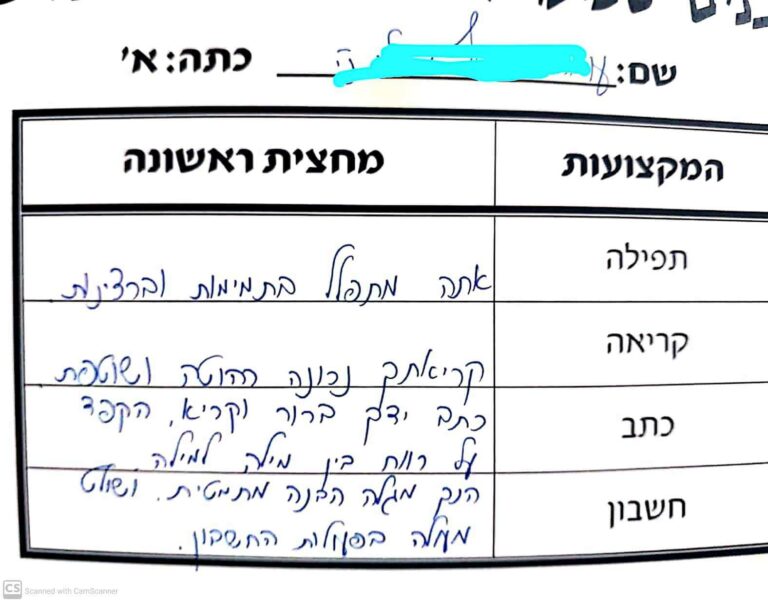 שם: כתה: א'
המקצועות מחצית ראשונה
תפילה אתה מתפלל בתמימות וברצינות.
קריאה קריאתך נכונה רהוטה ושוטפת
כתב כתב ידך ברור וקריא. הקפד
על רווח בין מילה למילה.
חשבון הנך מגלה הבנה מתמטית. ושולט
מעולה בפעולות החשבון.
CS Scanned with CamScanner